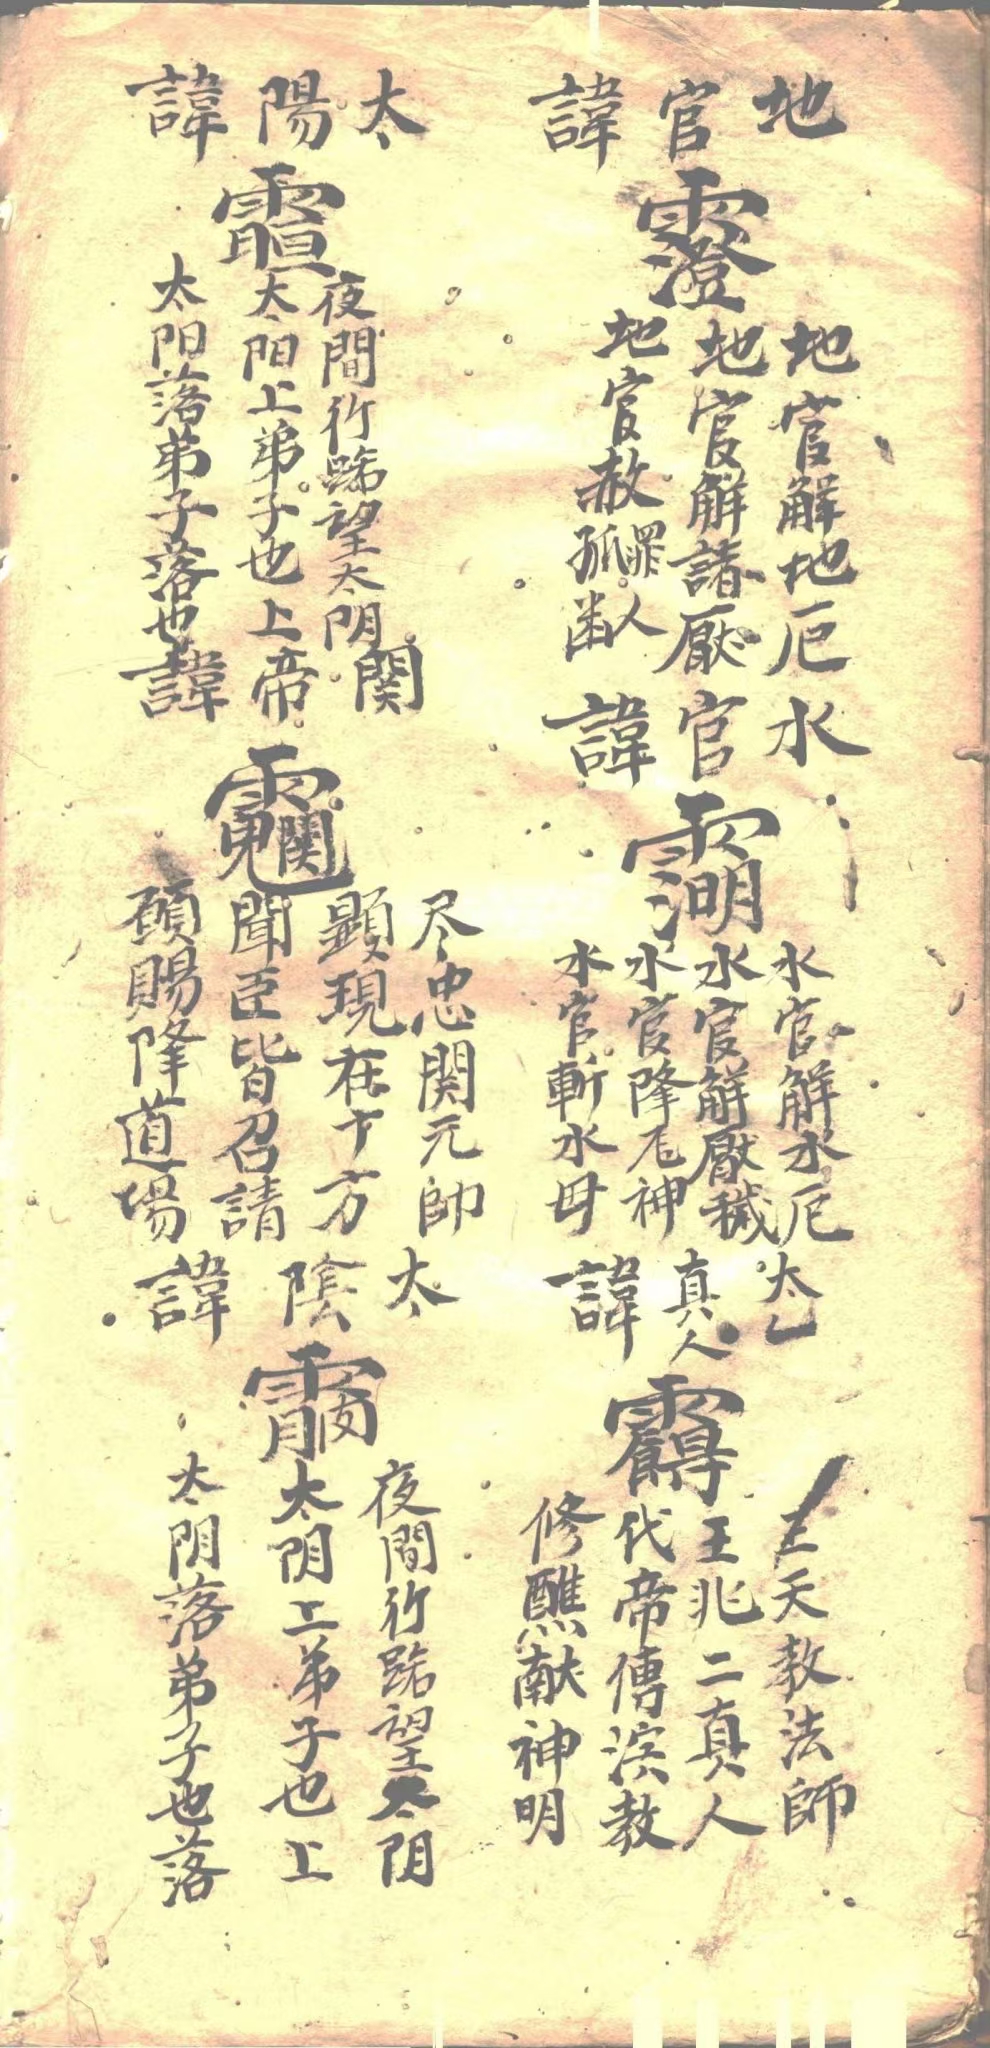 地官諱
地官解地厄
地官解諸厭
地官赦罪人
孤幽
水官諱
水官解水厄
水官解厭穢
水官降厄神
水官斬水母
太乙真人諱
天教法師
王兆二真人
代帝傳演教
修醮献神明
太陽諱
夜間行路望太阴
太阳上弟子也上
太阳落弟子落也
関帝諱
尽忠関元帥
顕現在十方
聞臣皆召請
願賜降道場
太陰諱
夜間行路望太阴
太阴上弟子也上
太阴落弟子也落